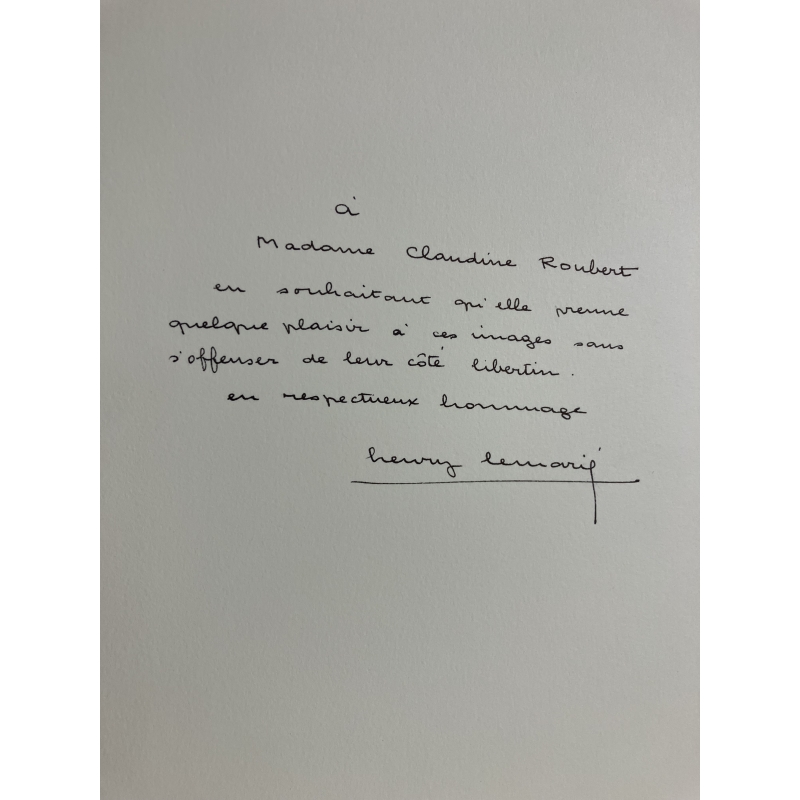 à
Madame Claudine Roubert
en souhaitant qu'elle prenne
quelque plaisir à ces images sans
s'offenser de leur côté libertin.
en respectueux hommage
henry lemarié